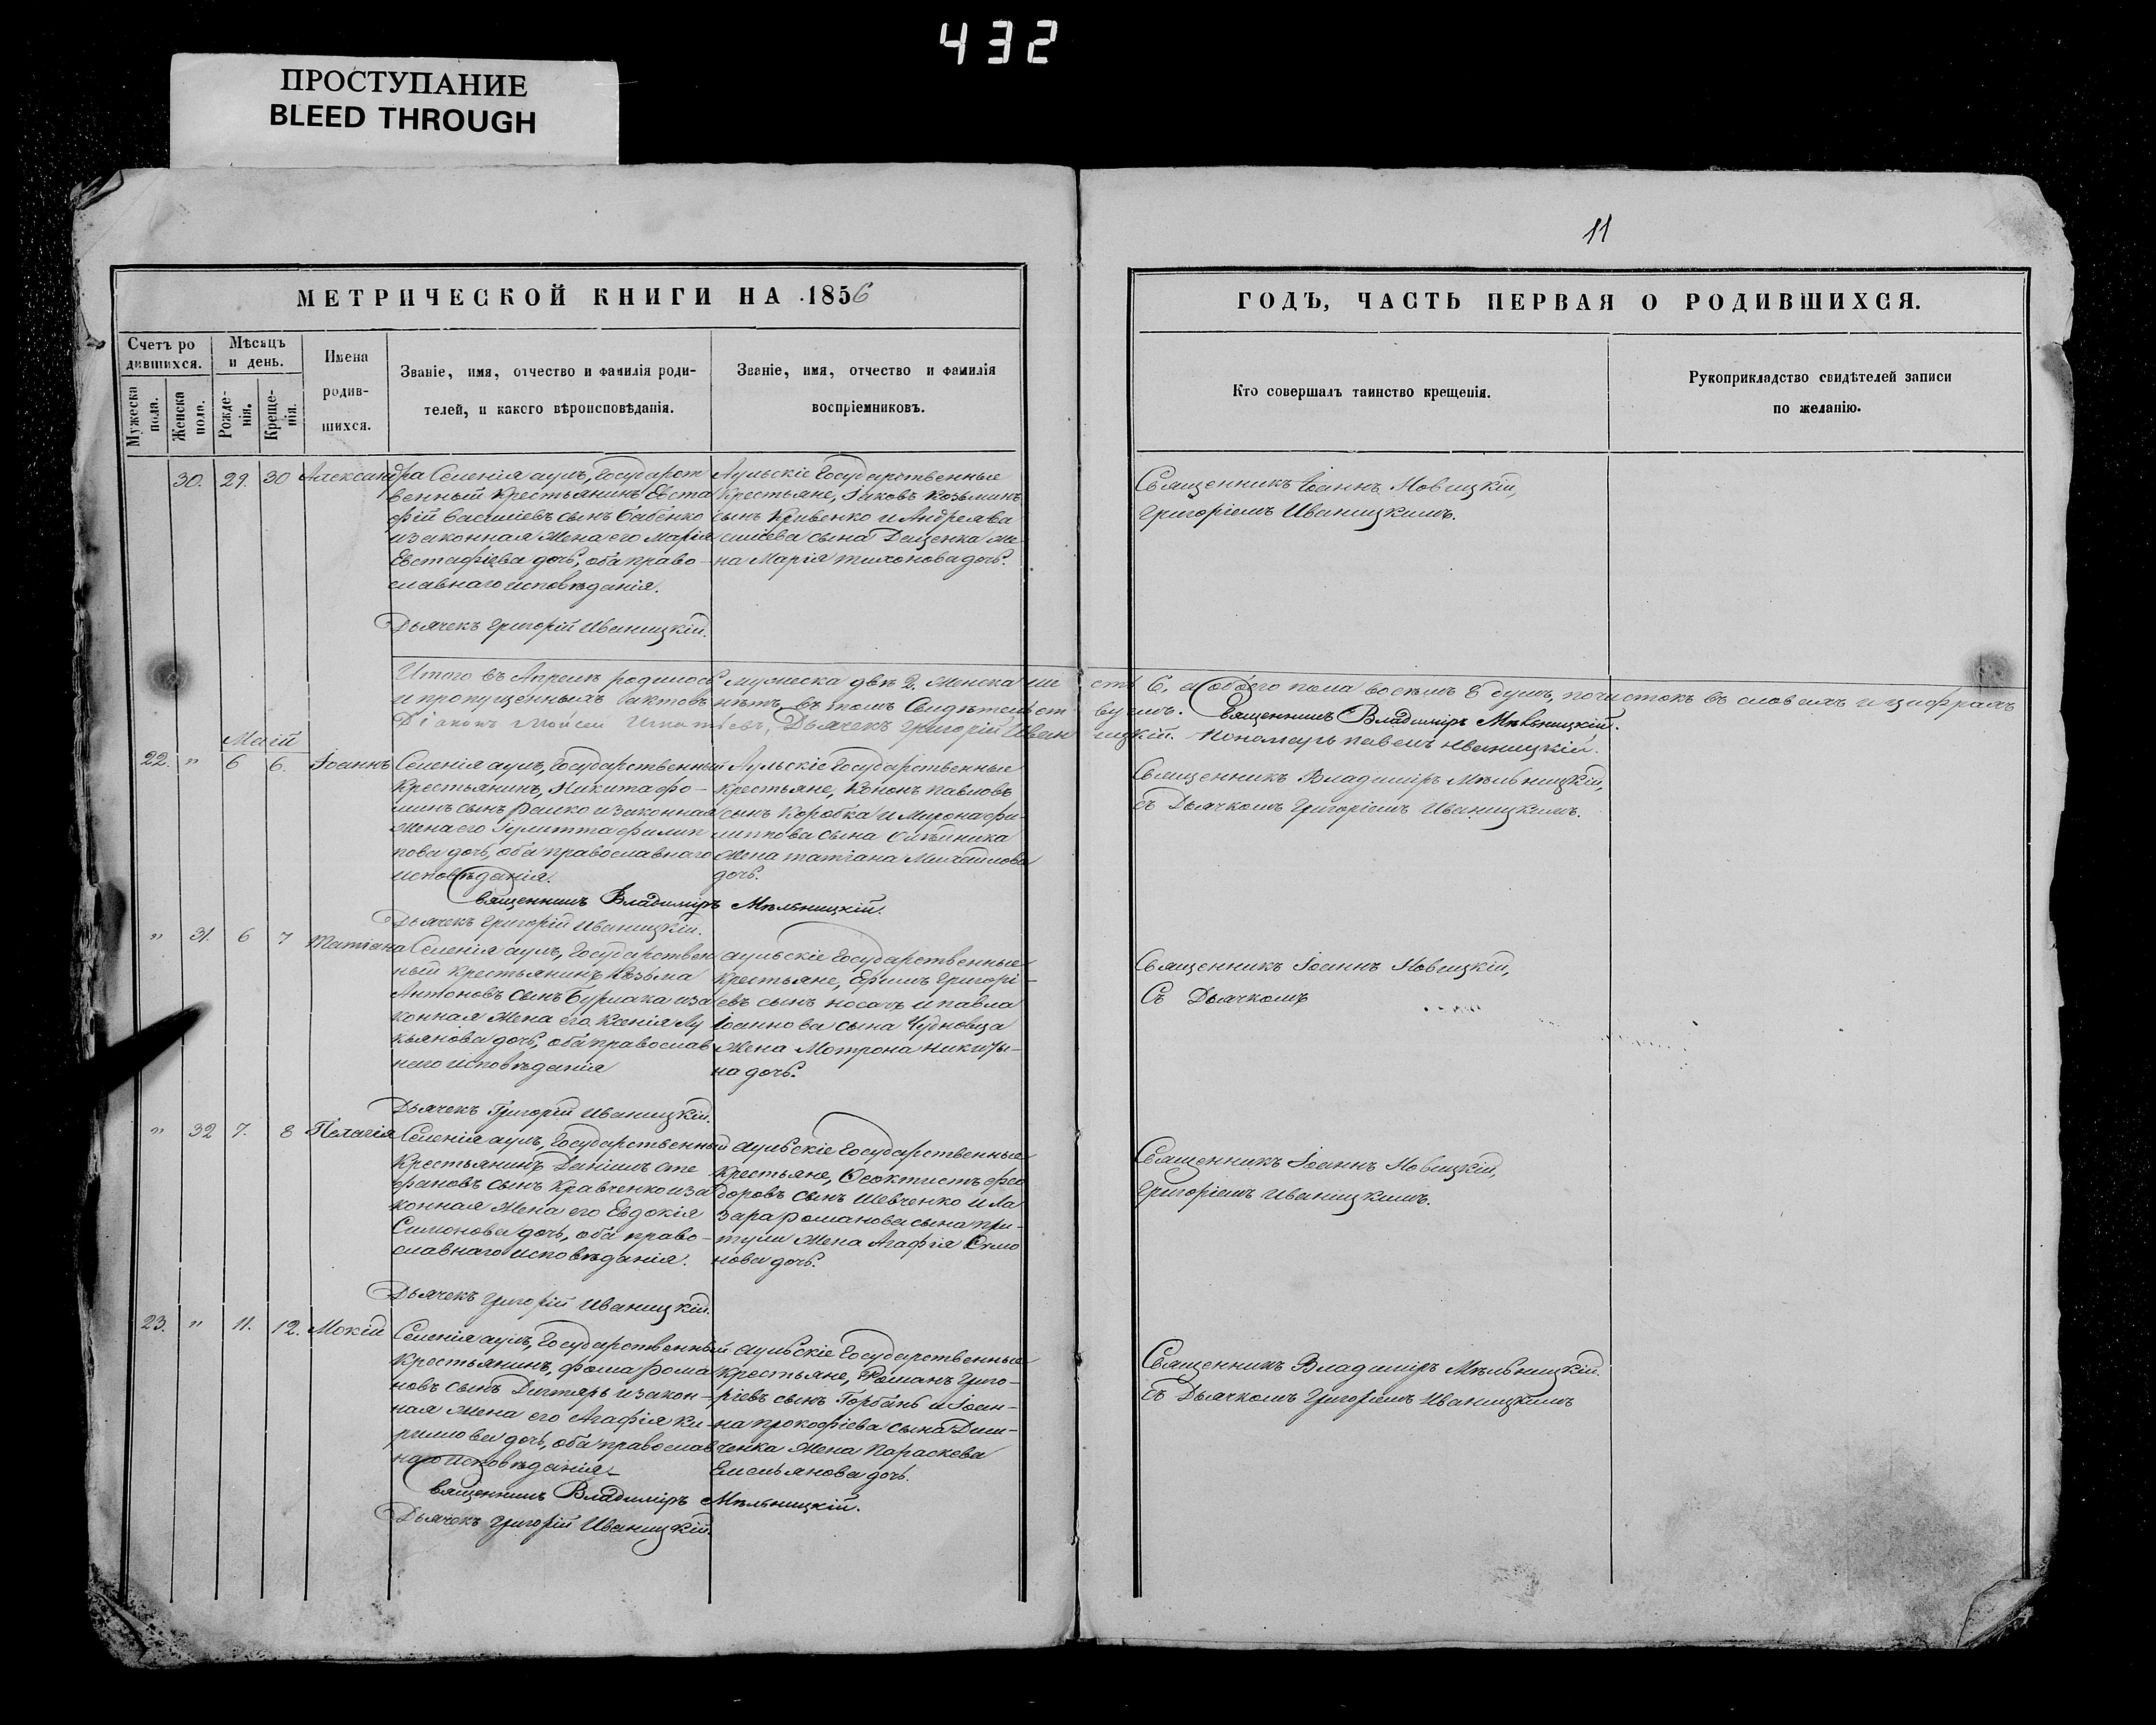 432
ПРОСТУПАНИЕ
BLEED THROUGH
11
МЕТРИЧЕСКОЙ КНИГИ НА 1856
ГОДЪ, ЧАСТЬ ПЕРВАЯ О РОДИВШИХСЯ.
Счетъ ро
дившихся.
Мужеска
пола.
Женска
пола.
Мѣсяцъ
и день.
Рожде-
нія.
Креще-
нія.
Имена
родив-
шихся.
Званіе, имя, отчество и фамилія роди-
телей, и какого вѣроисповѣданія.
Званіе, имя, отчество и фамилія
воспріемниковъ.
Кто совершалъ таинство крещенія.
Рукоприкладство свидѣтелей записи
по желанію.
30. 29. 30 Александра
Селенія аулъ, Государст
венный Крестьянинъ Евста
фій Василіевъ сынъ Бабенко
и законная жена его Марія
Евстафіева дочь, оба право-
славнаго исповѣданія.
Дьячекъ Григорій Иваницкій.
Аульскіе Государственные
Крестьяне, Іаковъ Козьминъ
сынъ Кривенко и Андрея Ва
силіева сына Даценка же
на Марія Тихонова дочь.
Священникъ Іоаннъ Новицкій,
Григоріемъ Иваницкимъ.
Итого въ Апрелѣ родилось мужеска двѣ 2. женска шесть 6, а обоего пола восемъ 8 душъ, почистокъ въ словахъ и цифрахъ
и пропущенныхъ актовъ нѣтъ, въ томъ Свидѣтельствуемъ. Священникъ Владиміръ Мѣльницкій.
Діаконъ Моисей Игнатіевъ, Дьячекъ Григорій Иваницкій. Пономарь Павелъ Иваницкій.
Маій
22. " 6 6. Іоаннъ
Селенія аулъ, Государственный
Крестьянинъ, Никита Фо-
минъ сынъ и законная
жена его Іулитта Филип
пова дочь, оба православнаго
исповѣданія.
Аульскіе Государственные
Крестьяне, Кононъ Павловъ
сынъ Коробка и Мирона Фи-
липпова сына Олѣйника
жена Татіана Михайлова
дочь.
Священникъ Владиміръ Мѣльницкій.
Дьячекъ Григорій Иваницкій.
Священникъ Владиміръ Мѣльницкій,
съ Дьячкомъ Григоріемъ Иваницкимъ.
" 31. 6 7 Татіана
Селенія аулъ, Государствен
ный Крестьянинъ Козьма
Антоновъ сынъ Бурлака и за
конная жена его Ксенія Лу
кьянова дочь, оба православ
наго исповѣданія
Дьячекъ Григорій Иваницкій.
аульскіе Государственные
Крестьяне, Ефимъ Григорі-
евъ сынъ Носачъ и Павла
Іоаннова сына Чудновца
жена Мотрона Никиты-
на дочь.
Священникъ Іоаннъ Новицкій,
Съ Дьячкомъ
" 32 7. 8 Пелагія
Селенія аулъ, Государственный
Крестьянинъ Даніилъ Сте
фановъ сынъ Кравченко и за
конная жена его Евдокія
Симонова дочь, оба право-
славнаго исповѣданія.
Дьячекъ Григорій Иваницкій.
аульскіе Государственные
Крестьяне, Феоктистъ Фео
доровъ сынъ Шевченко и Ла
заря Романова сына При-
тули жена Агафія Симо
нова дочь.
Священникъ Іоаннъ Новицкій,
Григоріемъ Иваницкимъ.
23. " 11. 12. Мокій
Селенія аулъ, Государственный
Крестьянинъ, Фома Рома
новъ сынъ Дигтярь и закон-
ная жена его Агафія Ки-
рилова дочь, оба православ
наго исповѣданія
аульскіе Государственные
Крестьяне, Романъ Григо-
ріевъ сынъ Горбань и Іоан-
на Прокофіева сына
жена Параскева
Емельянова дочь.
Священникъ Владиміръ Мѣльницкій.
Дьячекъ Григорій Иваницкій.
Священникъ Владиміръ Мѣльницкій.
съ Дьячкомъ Григоріемъ Иваницкимъ